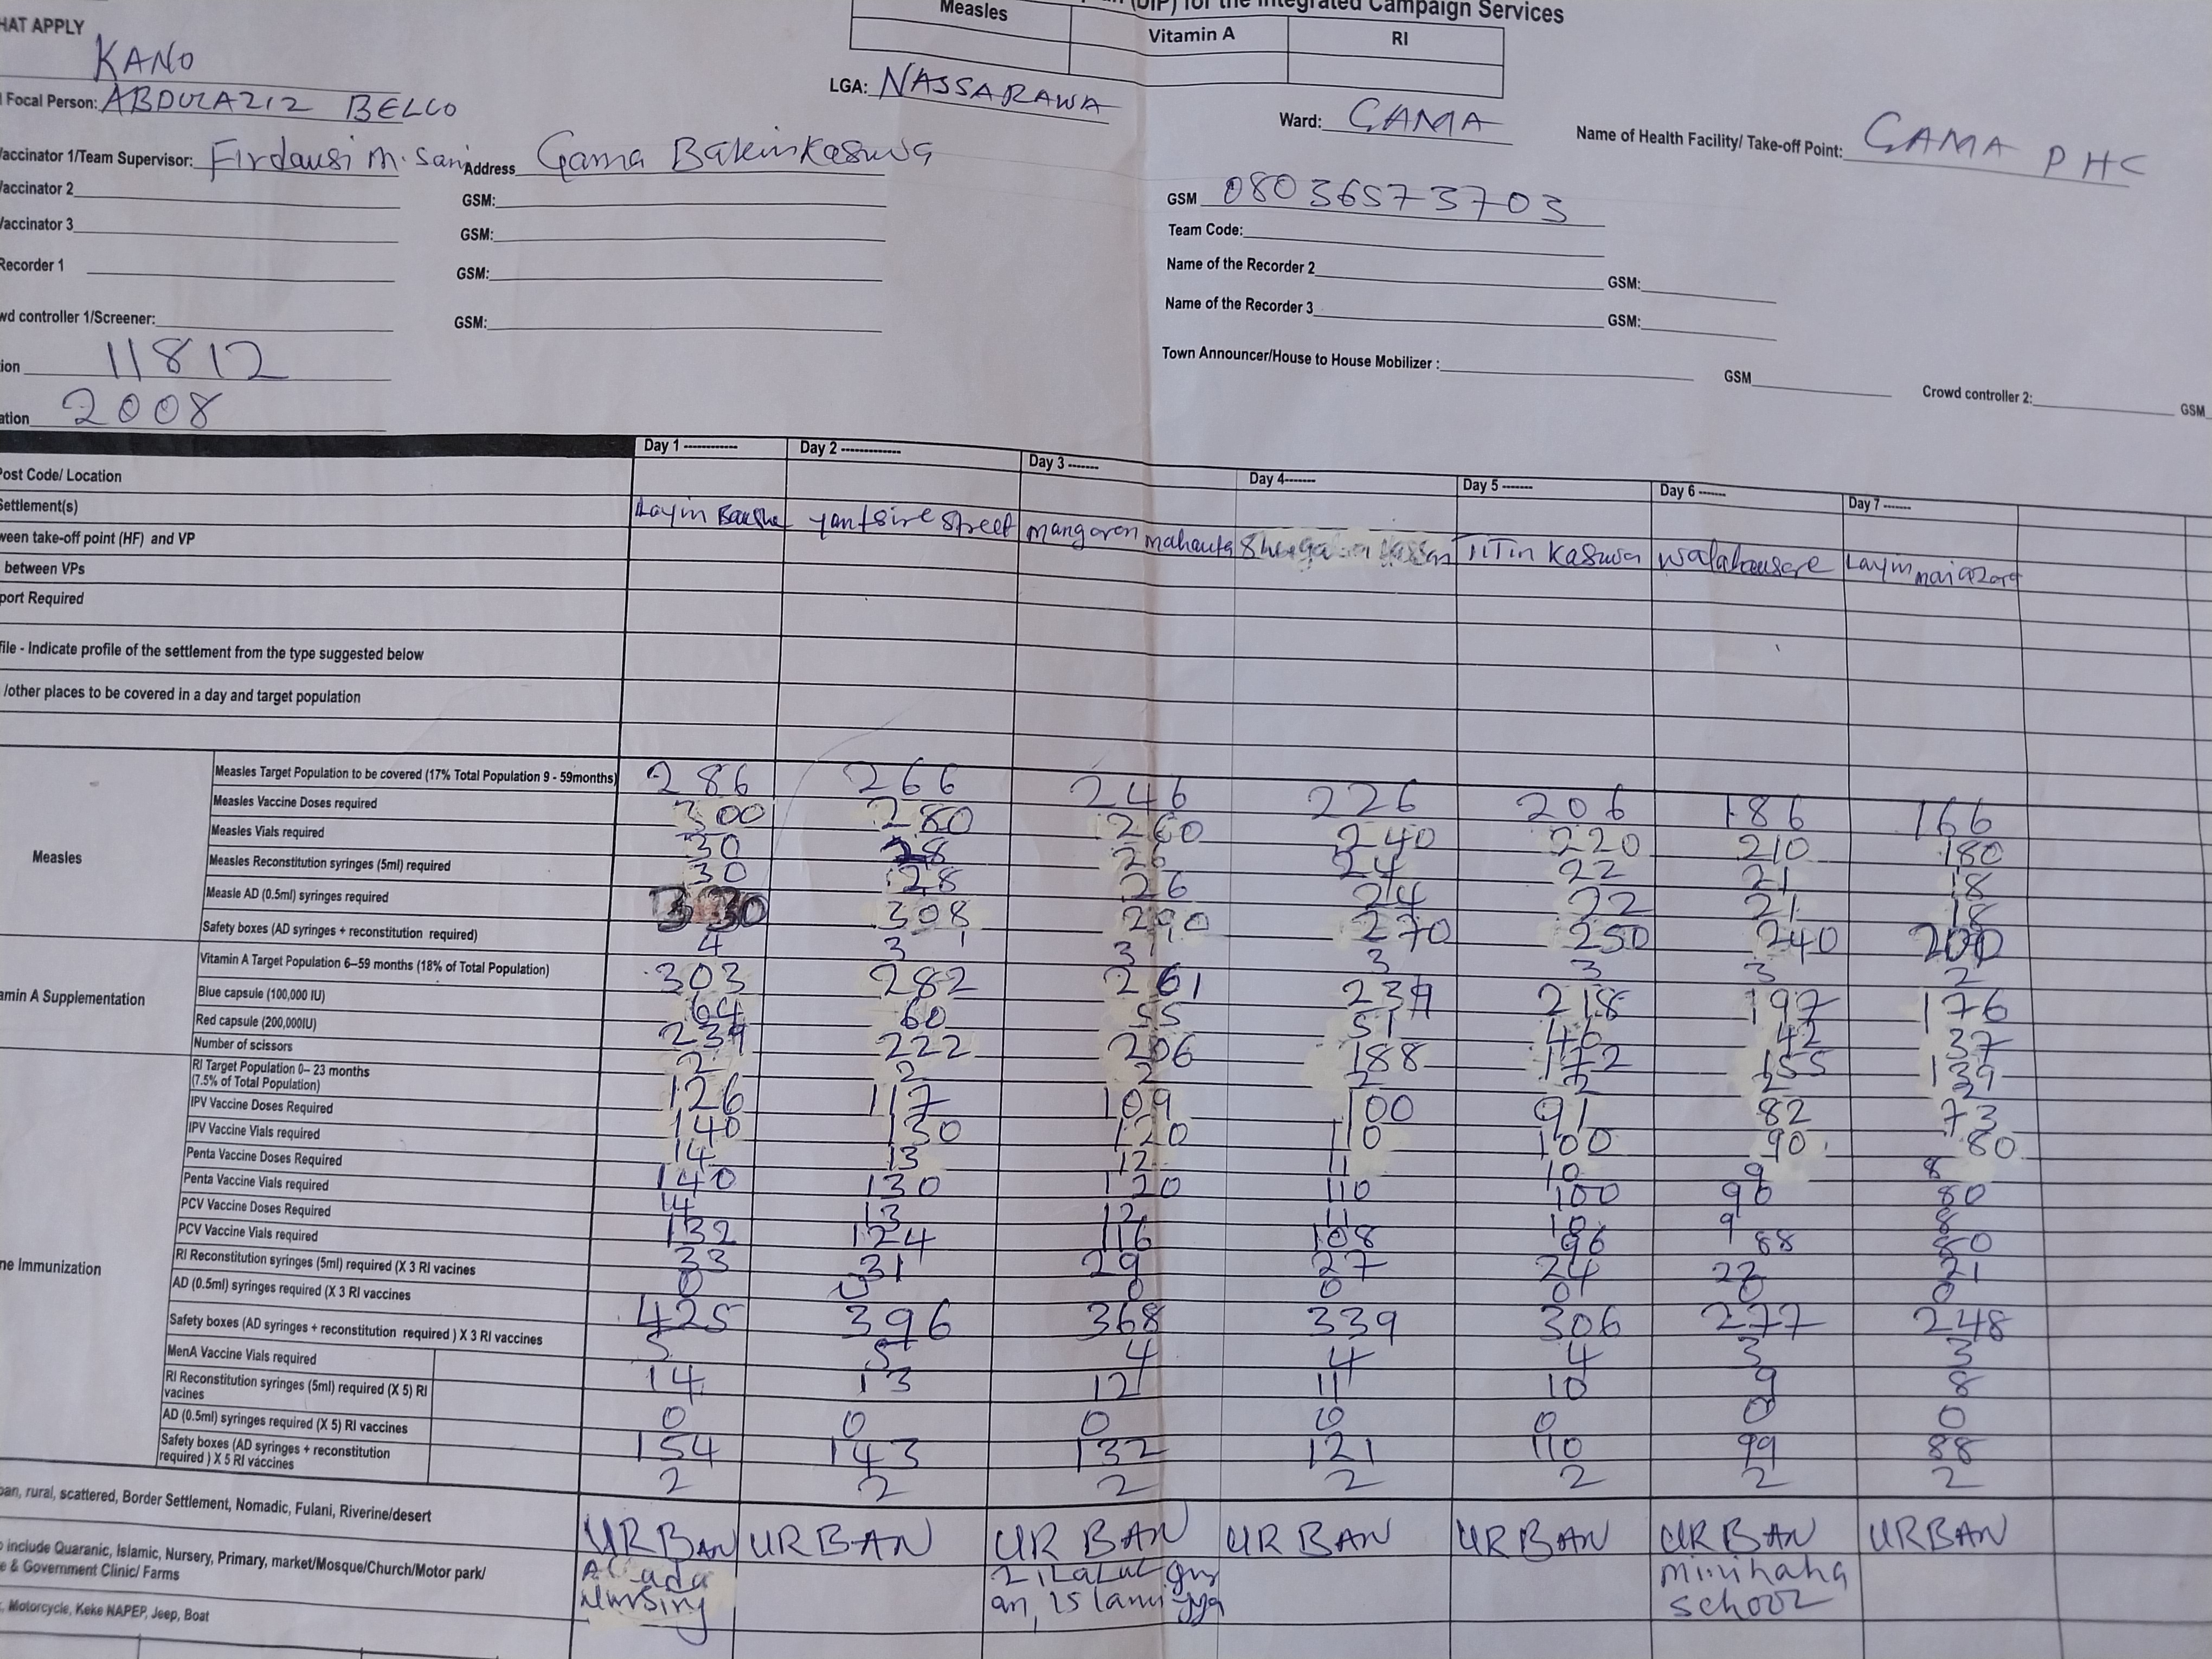 (DIP) for the Integrated Campaign Services
HAT APPLY
Measles Vitamin A RI
KANO LGA: NASSARAWA Ward: GAMA Name of Health Facility/ Take-off Point: GAMA PHC
Focal Person: ABDULAZIZ BELLO
accinator 1/Team Supervisor: Firdausi M. Sani Address Gama Bakinkasuwa GSM 08036573703
accinator 2 GSM: Team Code:
accinator 3 GSM: Name of the Recorder 2 GSM:
Recorder 1 GSM: Name of the Recorder 3 GSM:
wd controller 1/Screener: GSM: Town Announcer/House to House Mobilizer : GSM Crowd controller 2: GSM
ion 11812
ation 2008
Day 1 Day 2 Day 3 Day 4 Day 5 Day 6 Day 7
Post Code/ Location
Settlement(s) Layin street mangoron Titin Kasuwa Layin
ween take-off point (HF) and VP
between VPs
port Required
file - Indicate profile of the settlement from the type suggested below
/other places to be covered in a day and target population
Measles
Measles Target Population to be covered (17% Total Population 9 - 59months) 286 266 246 226 206 186 166
Measles Vaccine Doses required 300 280 260 240 220 210 180
Measles Vials required 30 28 26 24 22 21 18
Measles Reconstitution syringes (5ml) required 30 28 26 24 22 21 18
Measle AD (0.5ml) syringes required 330 308 290 270 250 240 200
Safety boxes (AD syringes + reconstitution required) 4 3 3 3 3 3 2
amin A Supplementation
Vitamin A Target Population 6–59 months (18% of Total Population) 303 282 261 239 218 197 176
Blue capsule (100,000 IU) 64 60 55 51 46 42 37
Red capsule (200,000IU) 239 222 206 188 172 155 139
Number of scissors 2 2 2 2 2 2 2
ne Immunization
RI Target Population 0- 23 months (7.5% of Total Population) 126 117 109 100 91 82 73
IPV Vaccine Doses Required 140 130 120 110 100 90 80
IPV Vaccine Vials required 14 13 12 11 10 9 8
Penta Vaccine Doses Required 140 130 120 110 100 90 80
Penta Vaccine Vials required 14 13 12 11 10 9 8
PCV Vaccine Doses Required 132 124 116 108 96 88 80
PCV Vaccine Vials required 33 31 29 27 24 22 21
RI Reconstitution syringes (5ml) required (X 3 RI vacines 0 0 0 0 0 0 0
AD (0.5ml) syringes required (X 3 RI vaccines 425 396 368 339 306 277 248
Safety boxes (AD syringes + reconstitution required ) X 3 RI vaccines 5 5 4 4 4 3 3
MenA Vaccine Vials required 14 13 12 11 10 9 8
RI Reconstitution syringes (5ml) required (X 5) RI vacines 0 0 0 0 0 0 0
AD (0.5ml) syringes required (X 5) RI vaccines 154 143 132 121 110 99 88
Safety boxes (AD syringes + reconstitution required ) X 5 RI vaccines 2 2 2 2 2 2 2
ban, rural, scattered, Border Settlement, Nomadic, Fulani, Riverine/desert URBAN URBAN URBAN URBAN URBAN URBAN URBAN
include Quranic, Islamic, Nursery, Primary, market/Mosque/Church/Motor park/
e & Government Clinic/ Farms
Nursing
islamiyya
minihaha
school
Motorcycle, Keke NAPEP, Jeep, Boat